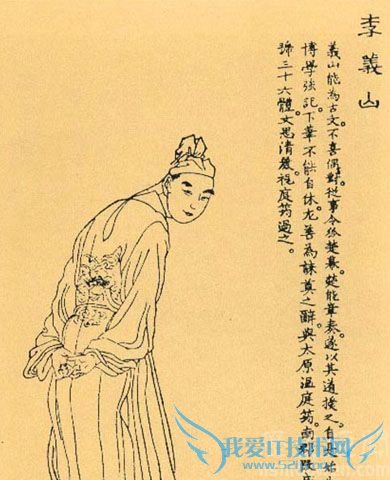 李義山
義山能為古文。不喜偶對。從事令狐楚幕。楚能章奏。遂以其道授之。自是始
博學強記。下筆不能自休。尤善為誄奠之辭。與太原溫庭筠。南郡段成
號三十六體。文思清麗。視庭筠過之。
我爱IT技术网